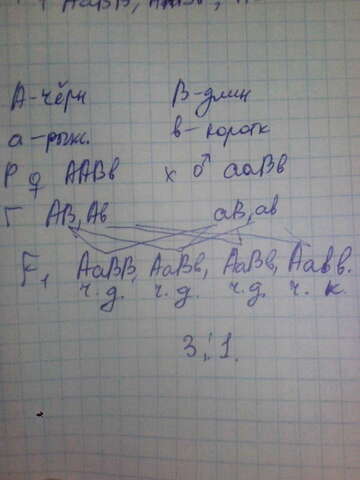 А-чёрн В-длин
а-рыж. в-коротк
Р ♀ ААВв х ♂ ааВв
Г АВ, Ав аВ, ав
F₁ АаВВ, АаВв, АаВв, Аавв.
ч.д. ч.д. ч.д. ч.к.
3:1.